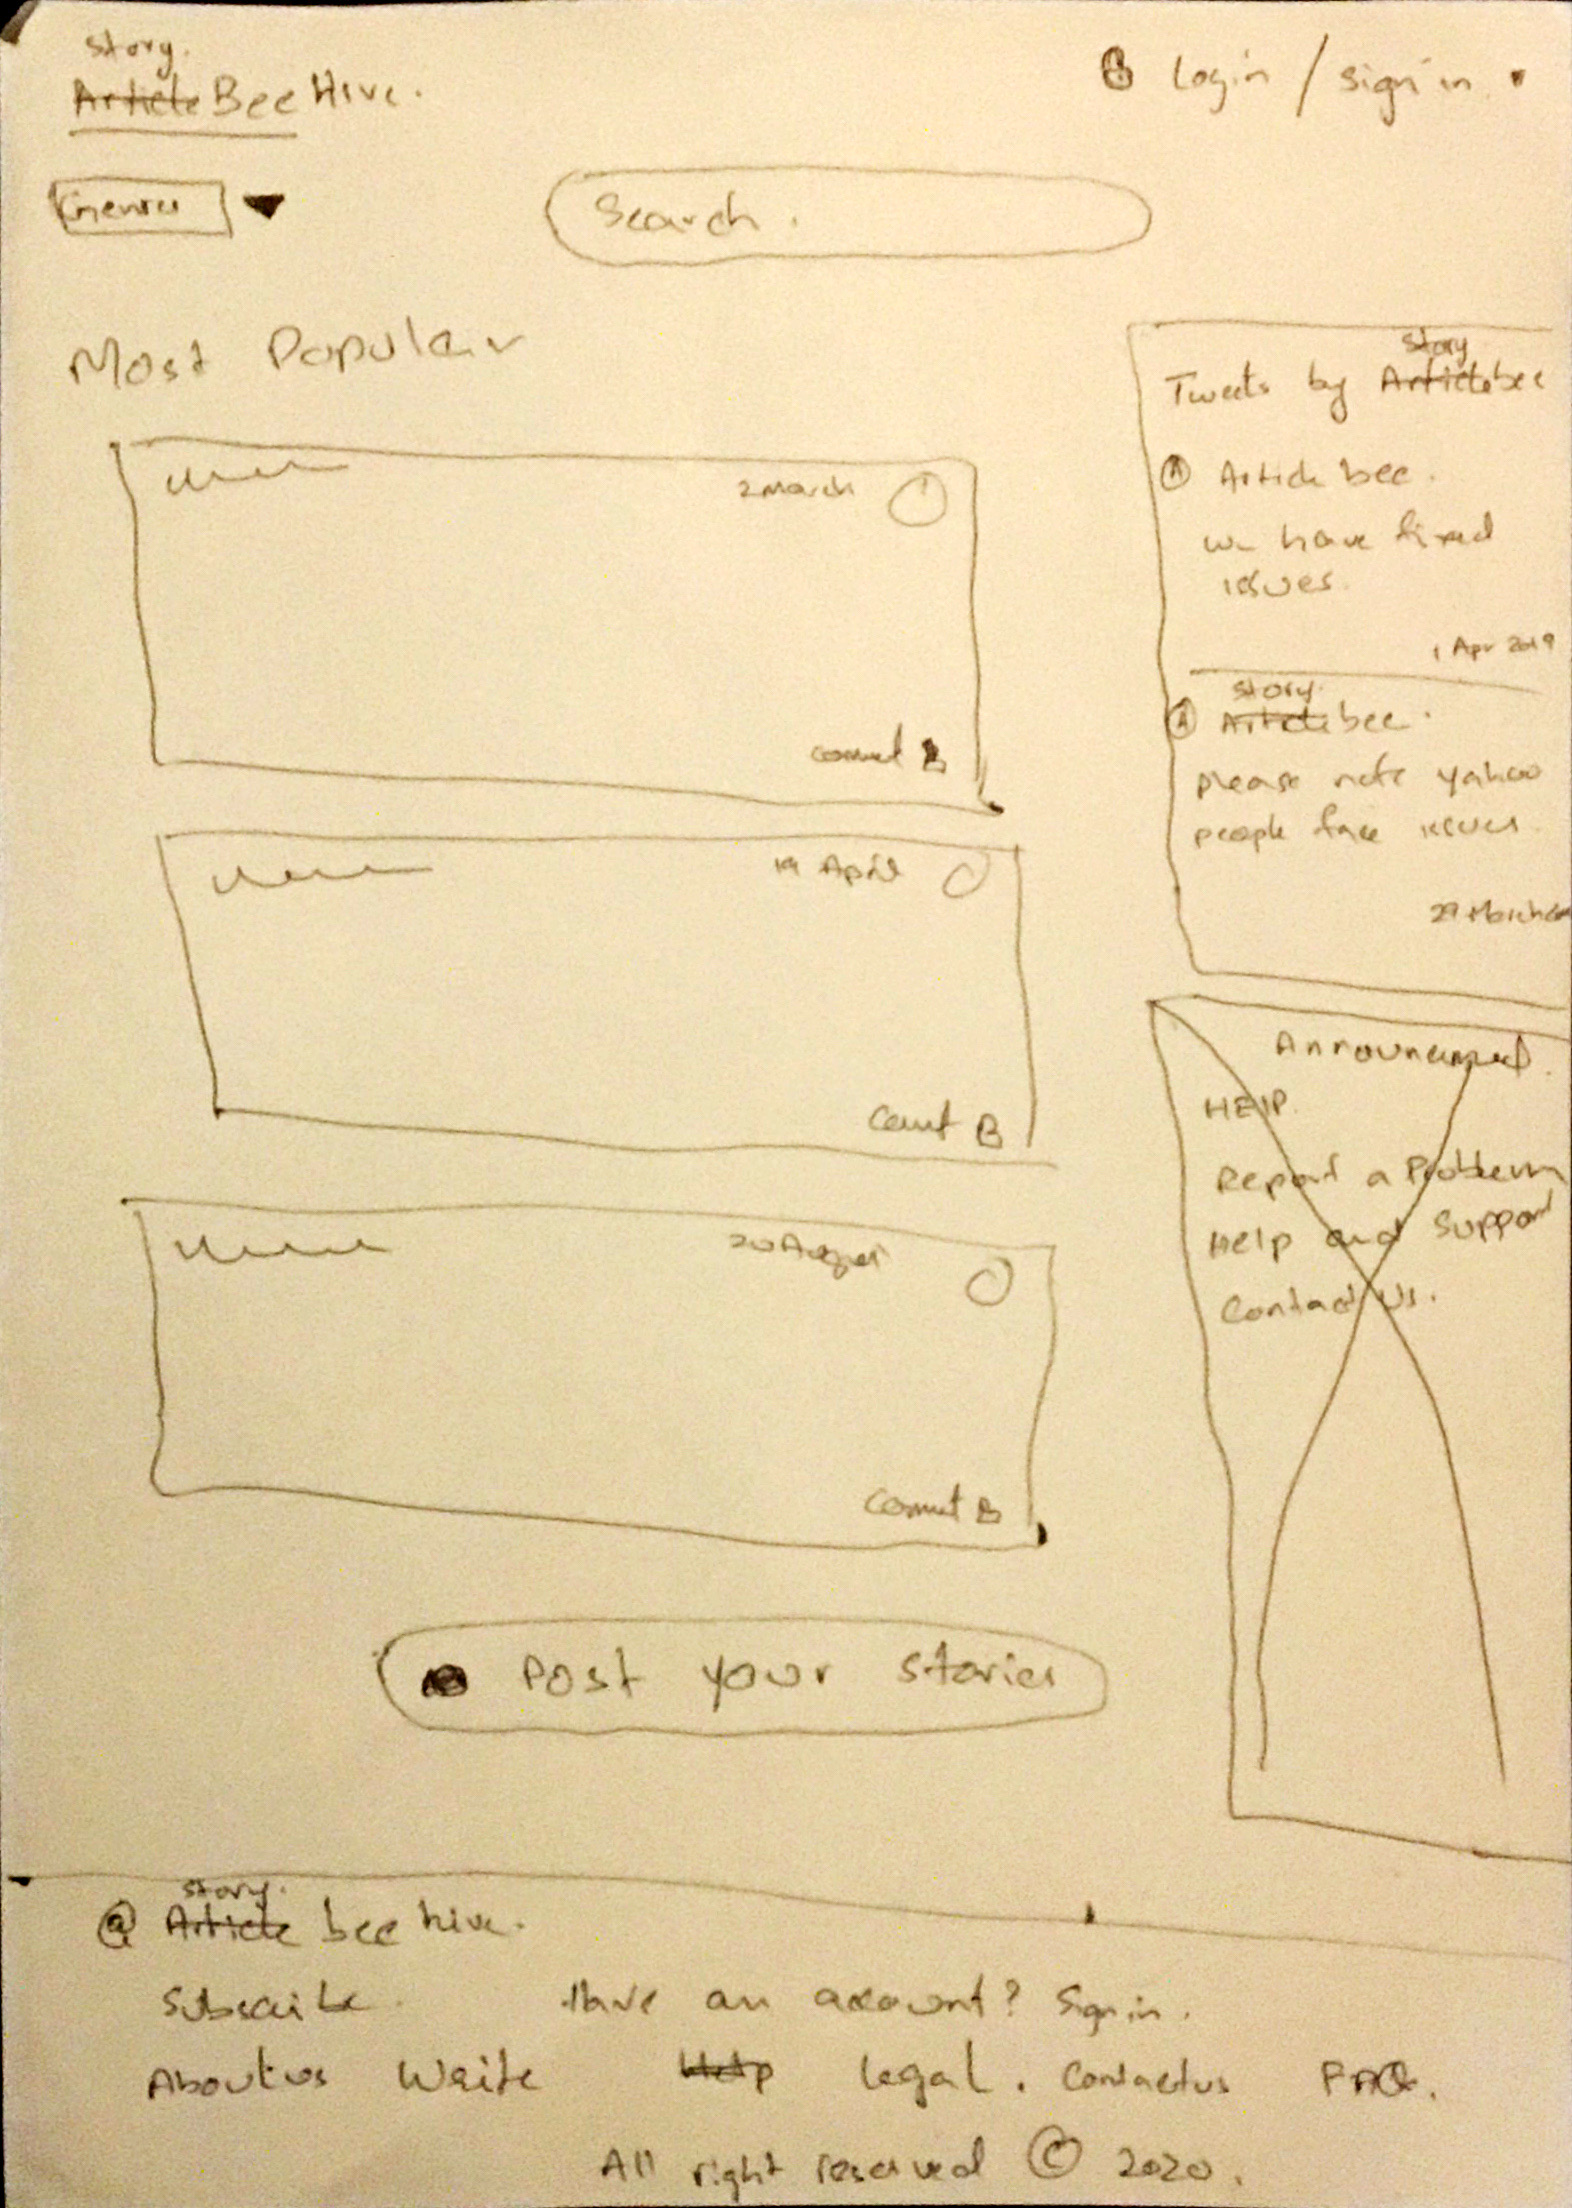 story.
Article Bee Hive.
Login / Sign in
Genres
Search.
Most Popular
2 March
comment
19 April
comment
20 August
comment
Post your stories
story
Tweets by Article bee
A Article bee.
we have fixed
issues.
1 Apr 2019
story.
A Article bee.
please note yahoo
people face issues
29 March
Announcement.
HELP
Report a Problem
Help and Support
Contact Us.
story.
@ Article bee hive.
Subscribe. Have an account? Sign in.
About us Write Help legal. Contact us FAQ.
All right reserved © 2020.